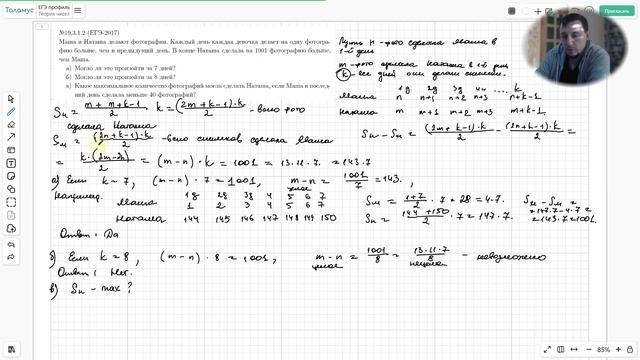 Таламус
ЕГЭ профиль
Теория чисел
Пригласить
№19.3.1.2 (ЕГЭ-2017)
Маша и Наташа делают фотографии. Каждый день каждая девочка делает на одну фотогра-
фию больше, чем в предыдущий день. В конце Наташа сделала на 1001 фотографию больше,
чем Маша.
а) Могло ли это произойти за 7 дней?
б) Могло ли это произойти за 8 дней?
в) Какое максимальное количество фотографий могла сделать Наташа, если Маша в послед-
ний день сделала меньше 40 фотографий?
Пусть n - фото сделала Маша в
1-й день
m - фото сделала Наташа в 1-й день
k - все дней они делали снимки.
1g 2g 3g 4g .... k
Маша n n+1 n+2 n+3 n+k-1
Наташа m m+1 m+2 m+3 m+k-1
Sн = (m + m+k-1)/2 · k = (2m+k-1)·k/2 - всего фото
сделала Наташа
Sм = (2n+k-1)·k/2 - всего снимков сделала Маша
Sн - Sм = (2m+k-1)·k/2 - (2n+k-1)·k/2 =
= k·(2m-2n)/2 = (m-n)·k = 1001 = 13·11·7 = 143·7
а) Если k = 7, (m-n)·7 = 1001, m-n = 1001/7 = 143,
целое
Например, 1g 2g 3g 4 5 6 7
Маша 1 2 3 4 5 6 7
Наташа 144 145 146 147 148 149 150
Sм = (1+7)/2 · 7 = 28 = 4·7
Sн = (144+150)/2 · 7 = 147·7
Sн - Sм =
= 147·7 - 4·7 =
= 143·7 = 1001.
Ответ: Да
б) Если k = 8, (m-n)·8 = 1001, m-n = 1001/8 = 13·11·7/8 - невозможно
целое нецелое
Ответ: Нет.
в) Sн - max ?
85%